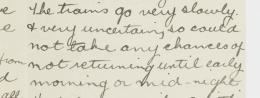 e The trains go very slowly
e & very uncertain, so could
not take any chances of
from not returning until early
d morning or mid-night
all